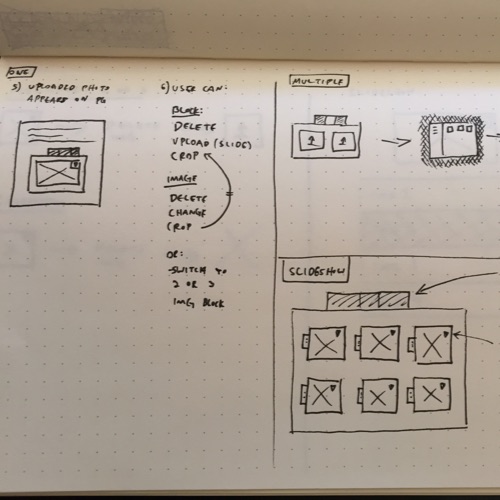 ONE
5) UPLOADED PHOTO
APPEARS ON PG
6) USER CAN:
BLOCK:
DELETE
UPLOAD (SLIDE)
CROP
IMAGE
DELETE
CHANGE
CROP
OR:
SWITCH TO
2 OR 3
IMG BLOCK
MULTIPLE
SLIDESHOW